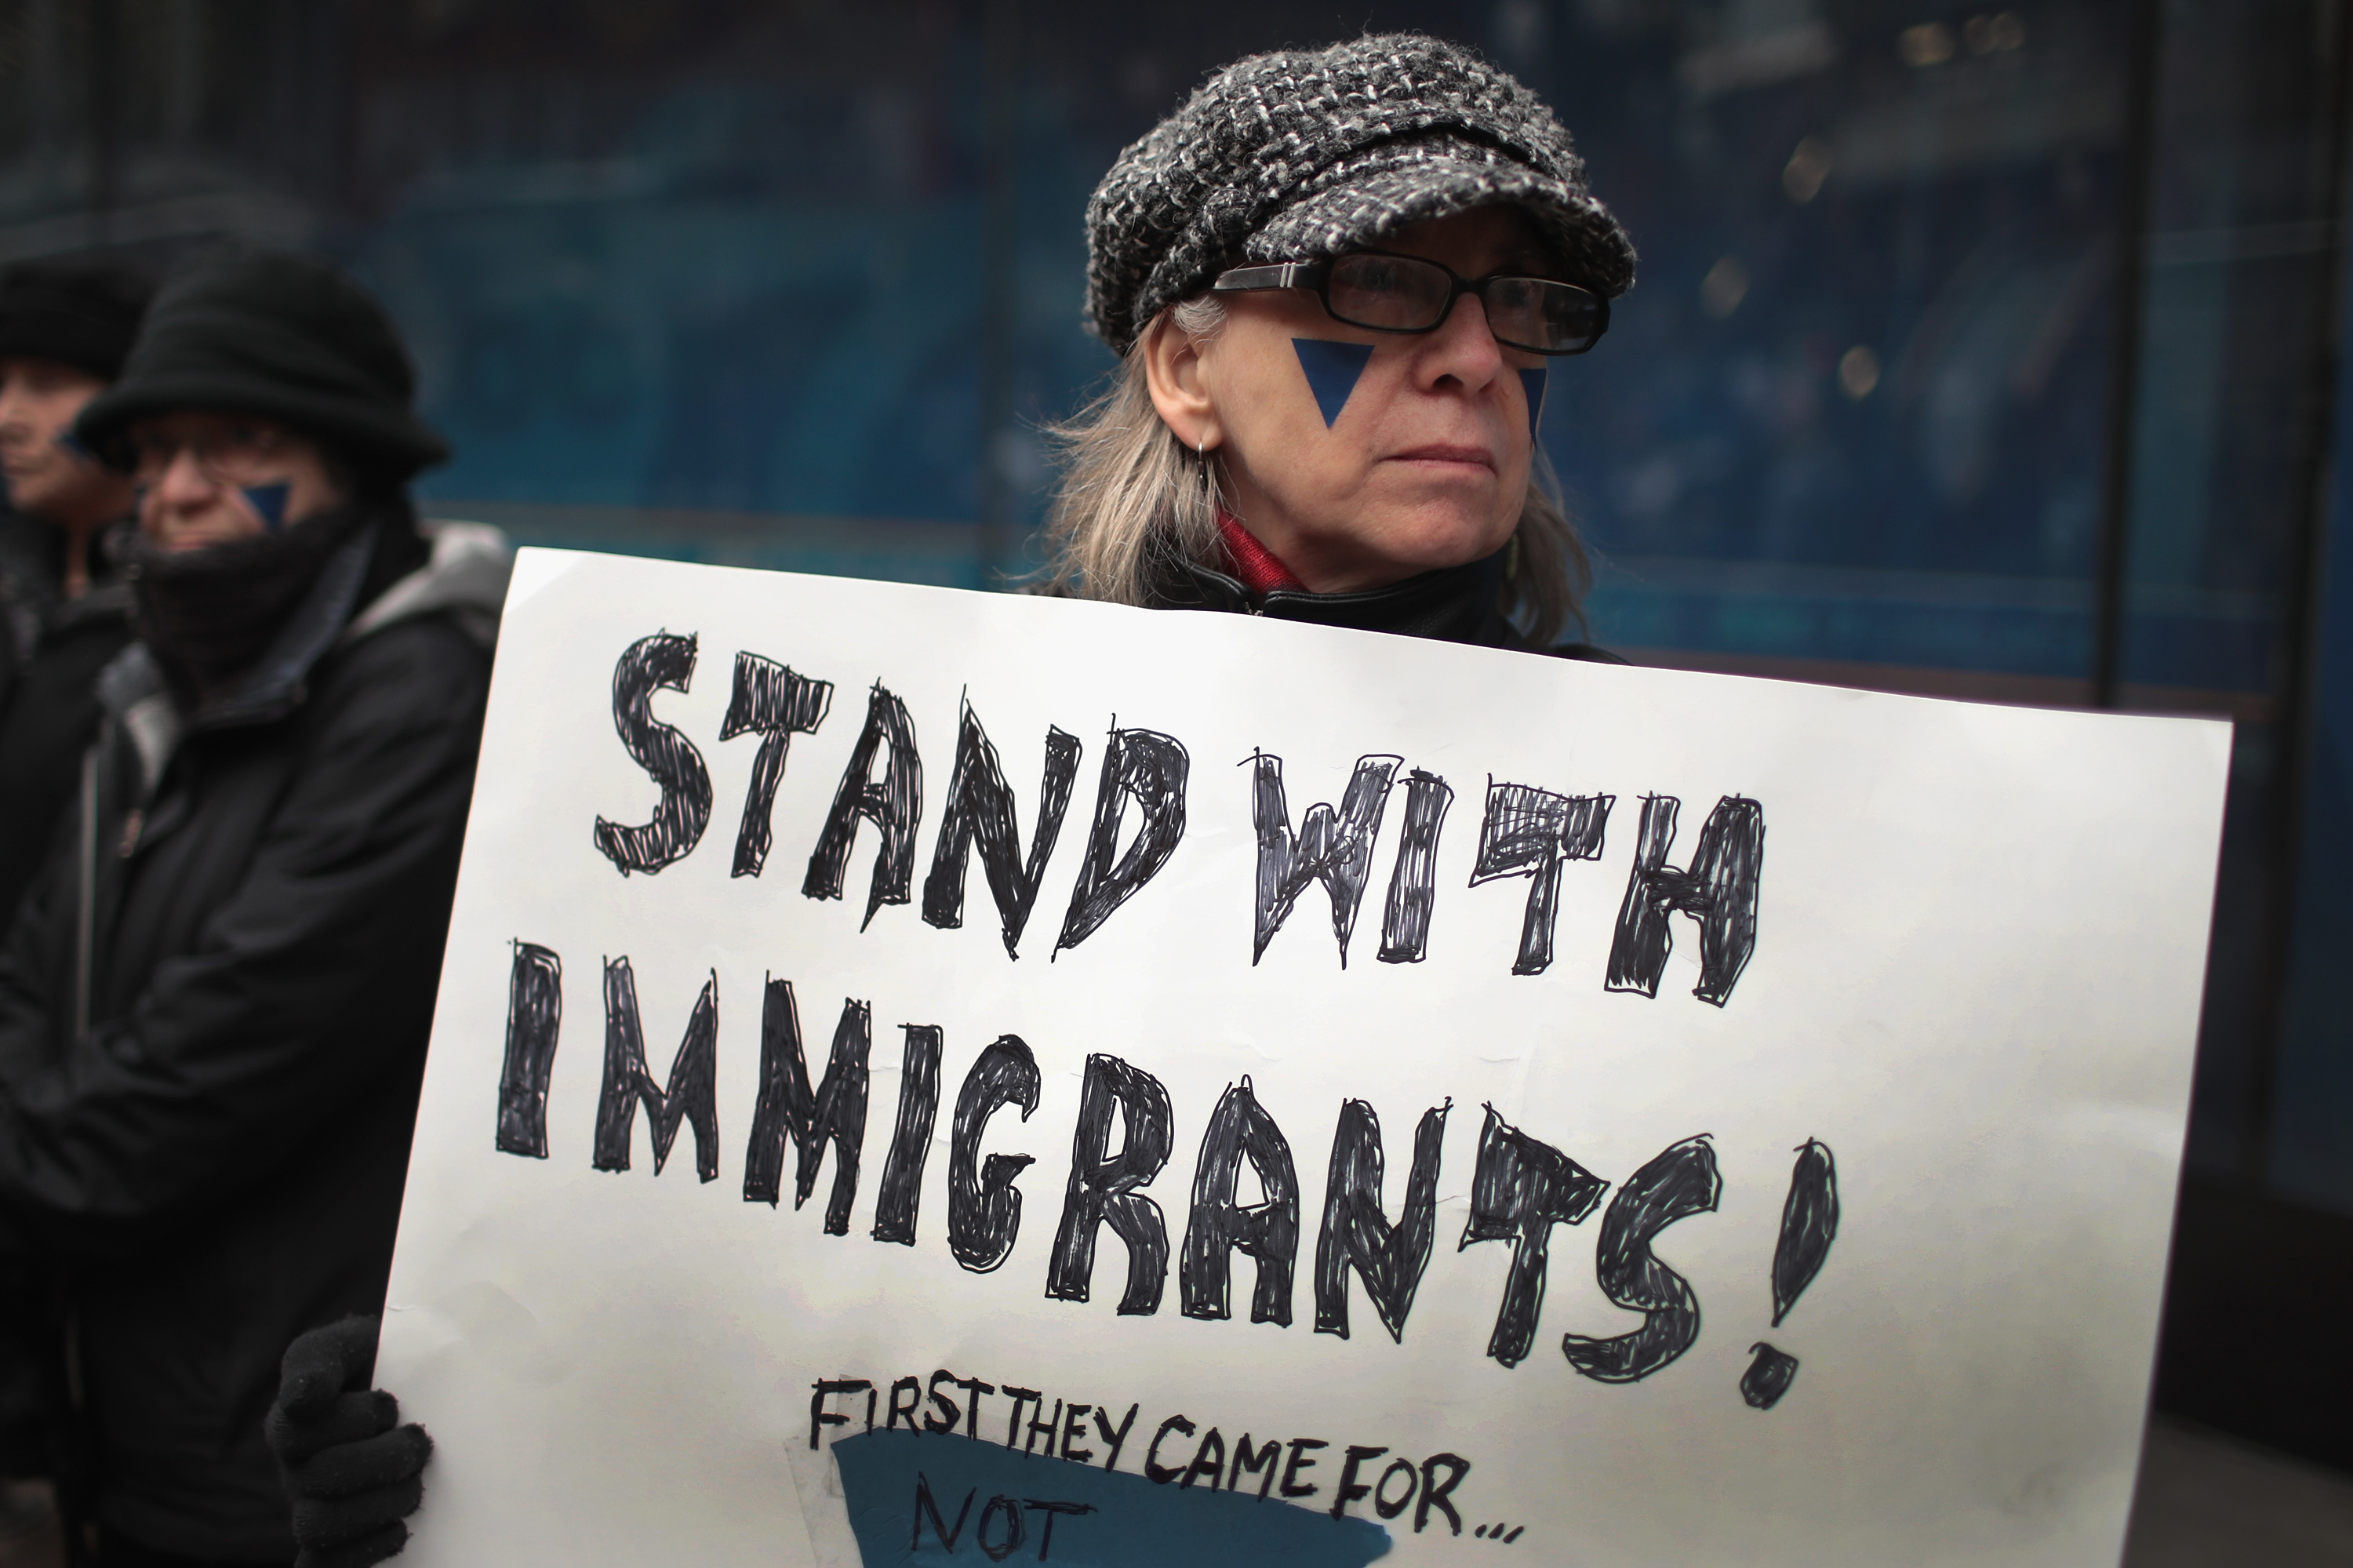 STAND WITH
IMMIGRANTS!
FIRST THEY CAME FOR...
NOT